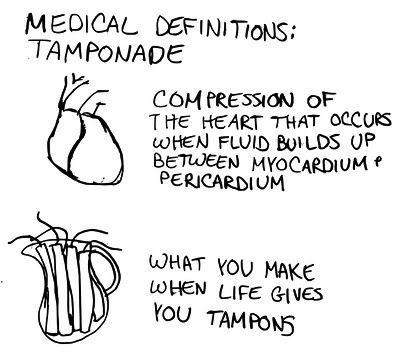 MEDICAL DEFINITIONS:
TAMPONADE
COMPRESSION OF
THE HEART THAT OCCURS
WHEN FLUID BUILDS UP
BETWEEN MYOCARDIUM &
PERICARDIUM
WHAT YOU MAKE
WHEN LIFE GIVES
YOU TAMPONS